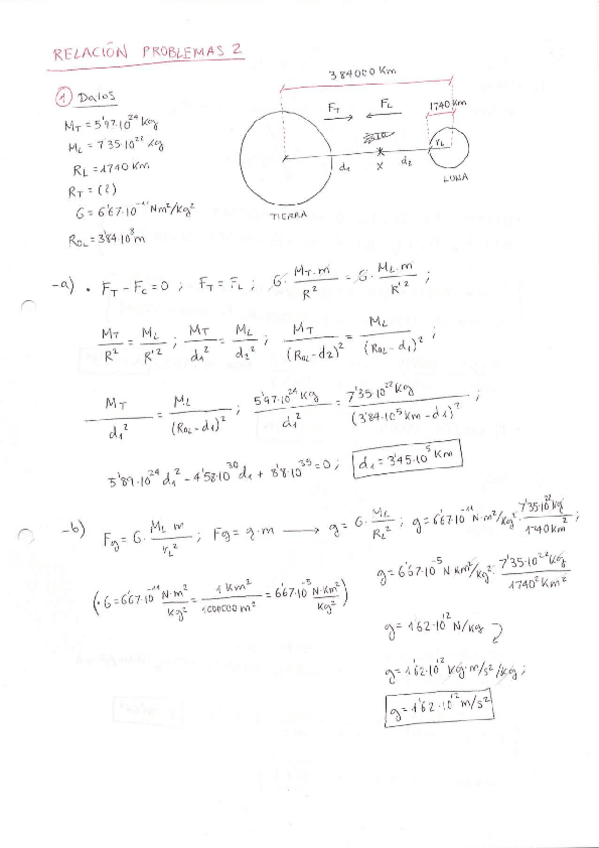 RELACIÓN PROBLEMAS 2
384000 Km
① Datos
F_T F_L 1740 Km
M_T = 5'97·10^24 Kg
M_L = 7'35·10^22 Kg
R_L = 1740 Km
R_T = (?)
G = 6'67·10^-11 Nm²/Kg²
R_OL = 3'84·10^8 m
d_1 X d_2 r_L
TIERRA LUNA
-a) • F_T - F_C = 0 ; F_T = F_L ; G · M_T · m / R² = G · M_L · m / R'² ;
M_T / R² = M_L / R'² ; M_T / d_1² = M_L / d_2² ; M_T / (R_OL - d_2)² = M_L / (R_OL - d_1)² ;
M_T / d_1² = M_L / (R_OL - d_1)² ; 5'97·10^24 Kg / d_1² = 7'35·10^22 Kg / (3'84·10^5 Km - d_1)² ;
5'89·10^24 d_1² - 4'58·10^30 d_1 + 8'8·10^35 = 0 ; d_1 = 3'45·10^5 Km
-b) F_g = G · M_L m / r_L² ; F_g = g · m → g = G · M_L / R_L² ; g = 6'67·10^-11 N·m²/Kg² · 7'35·10^22 Kg / 1740 Km² ;
(• G = 6'67·10^-11 N·m² / Kg² = 1 Km² / 1000000 m² = 6'67·10^-5 N·Km² / Kg²)
g = 6'67·10^-5 N Km²/Kg² · 7'35·10^22 Kg / 1740² Km²
g = 1'62·10^12 N/Kg
g = 1'62·10^12 Kg·m/s²/Kg ;
g = 1'62·10^12 m/s²